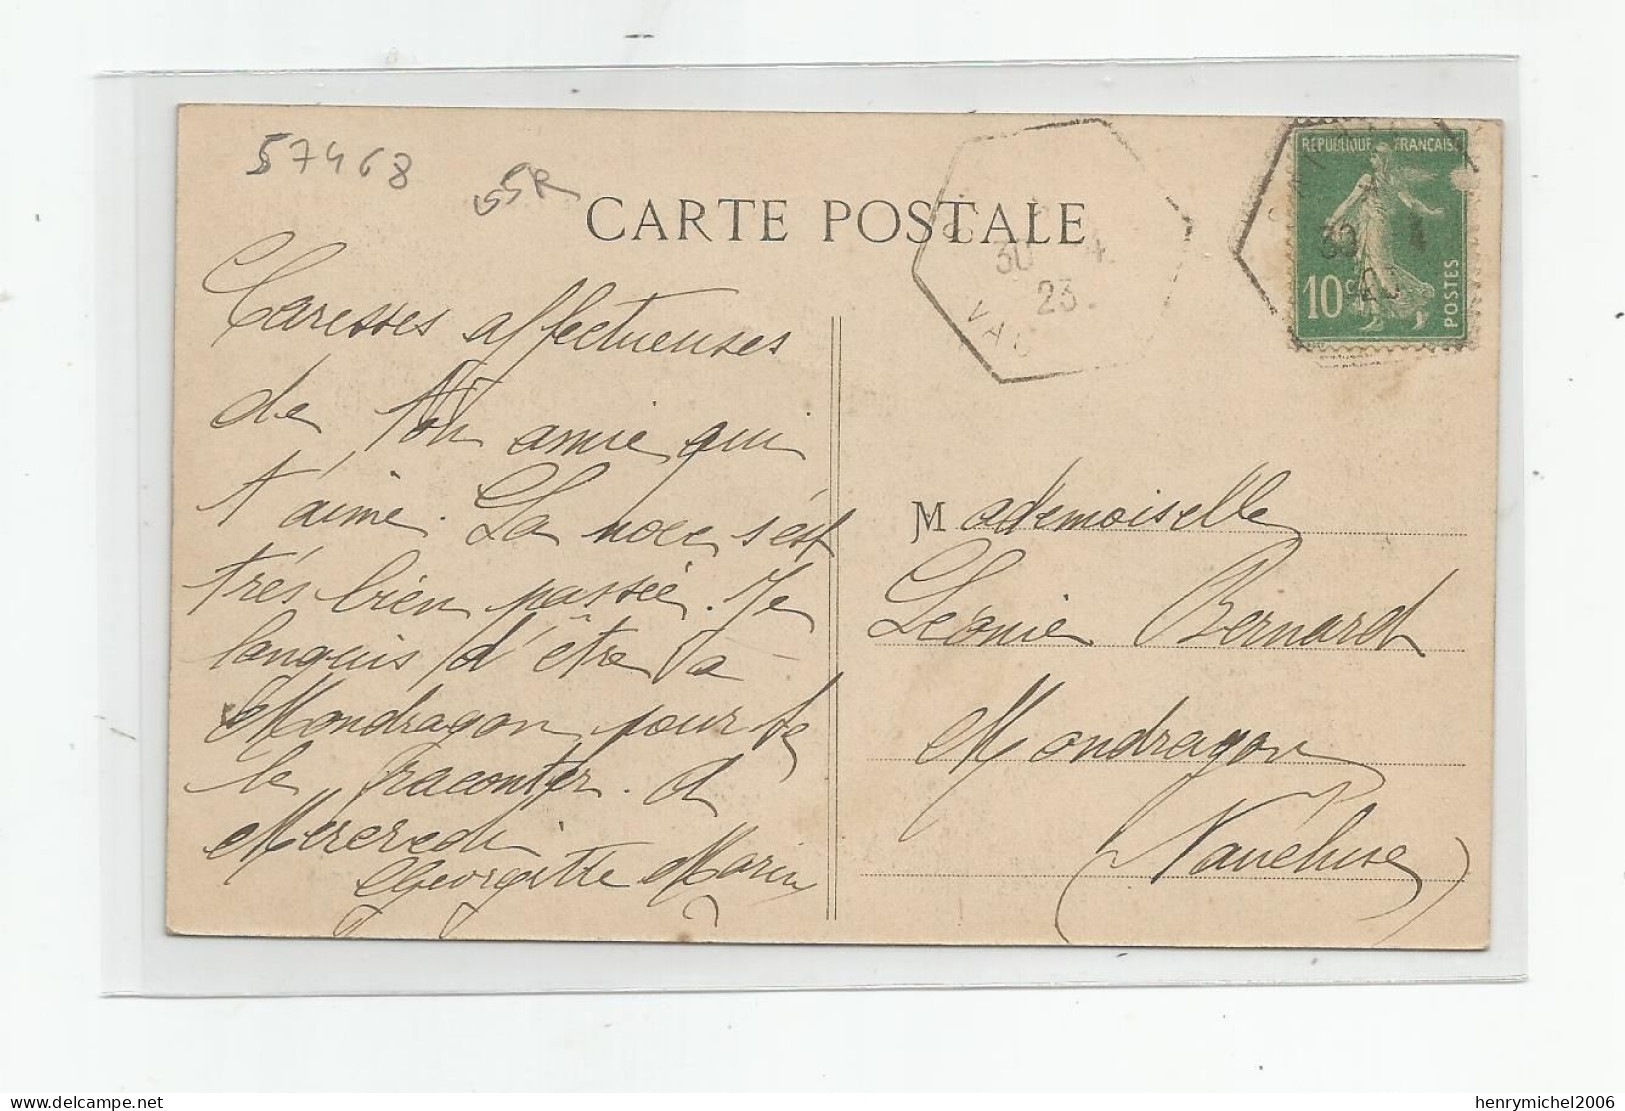 57468
55R
CARTE POSTALE
30 4
23
VAU
REPUBLIQUE FRANÇAISE
30 4
10c
POSTES
Caresses affectueuses
de Ton amie qui
t'aime. La noce s'est
très bien passée. Je
languis d'être à
Mondragon pour te
le raconter. A
Mercredi
Georgette Marin
Mademoiselle
Léonie Bernard
Mondragon
(Vaucluse)
henrymichel2006